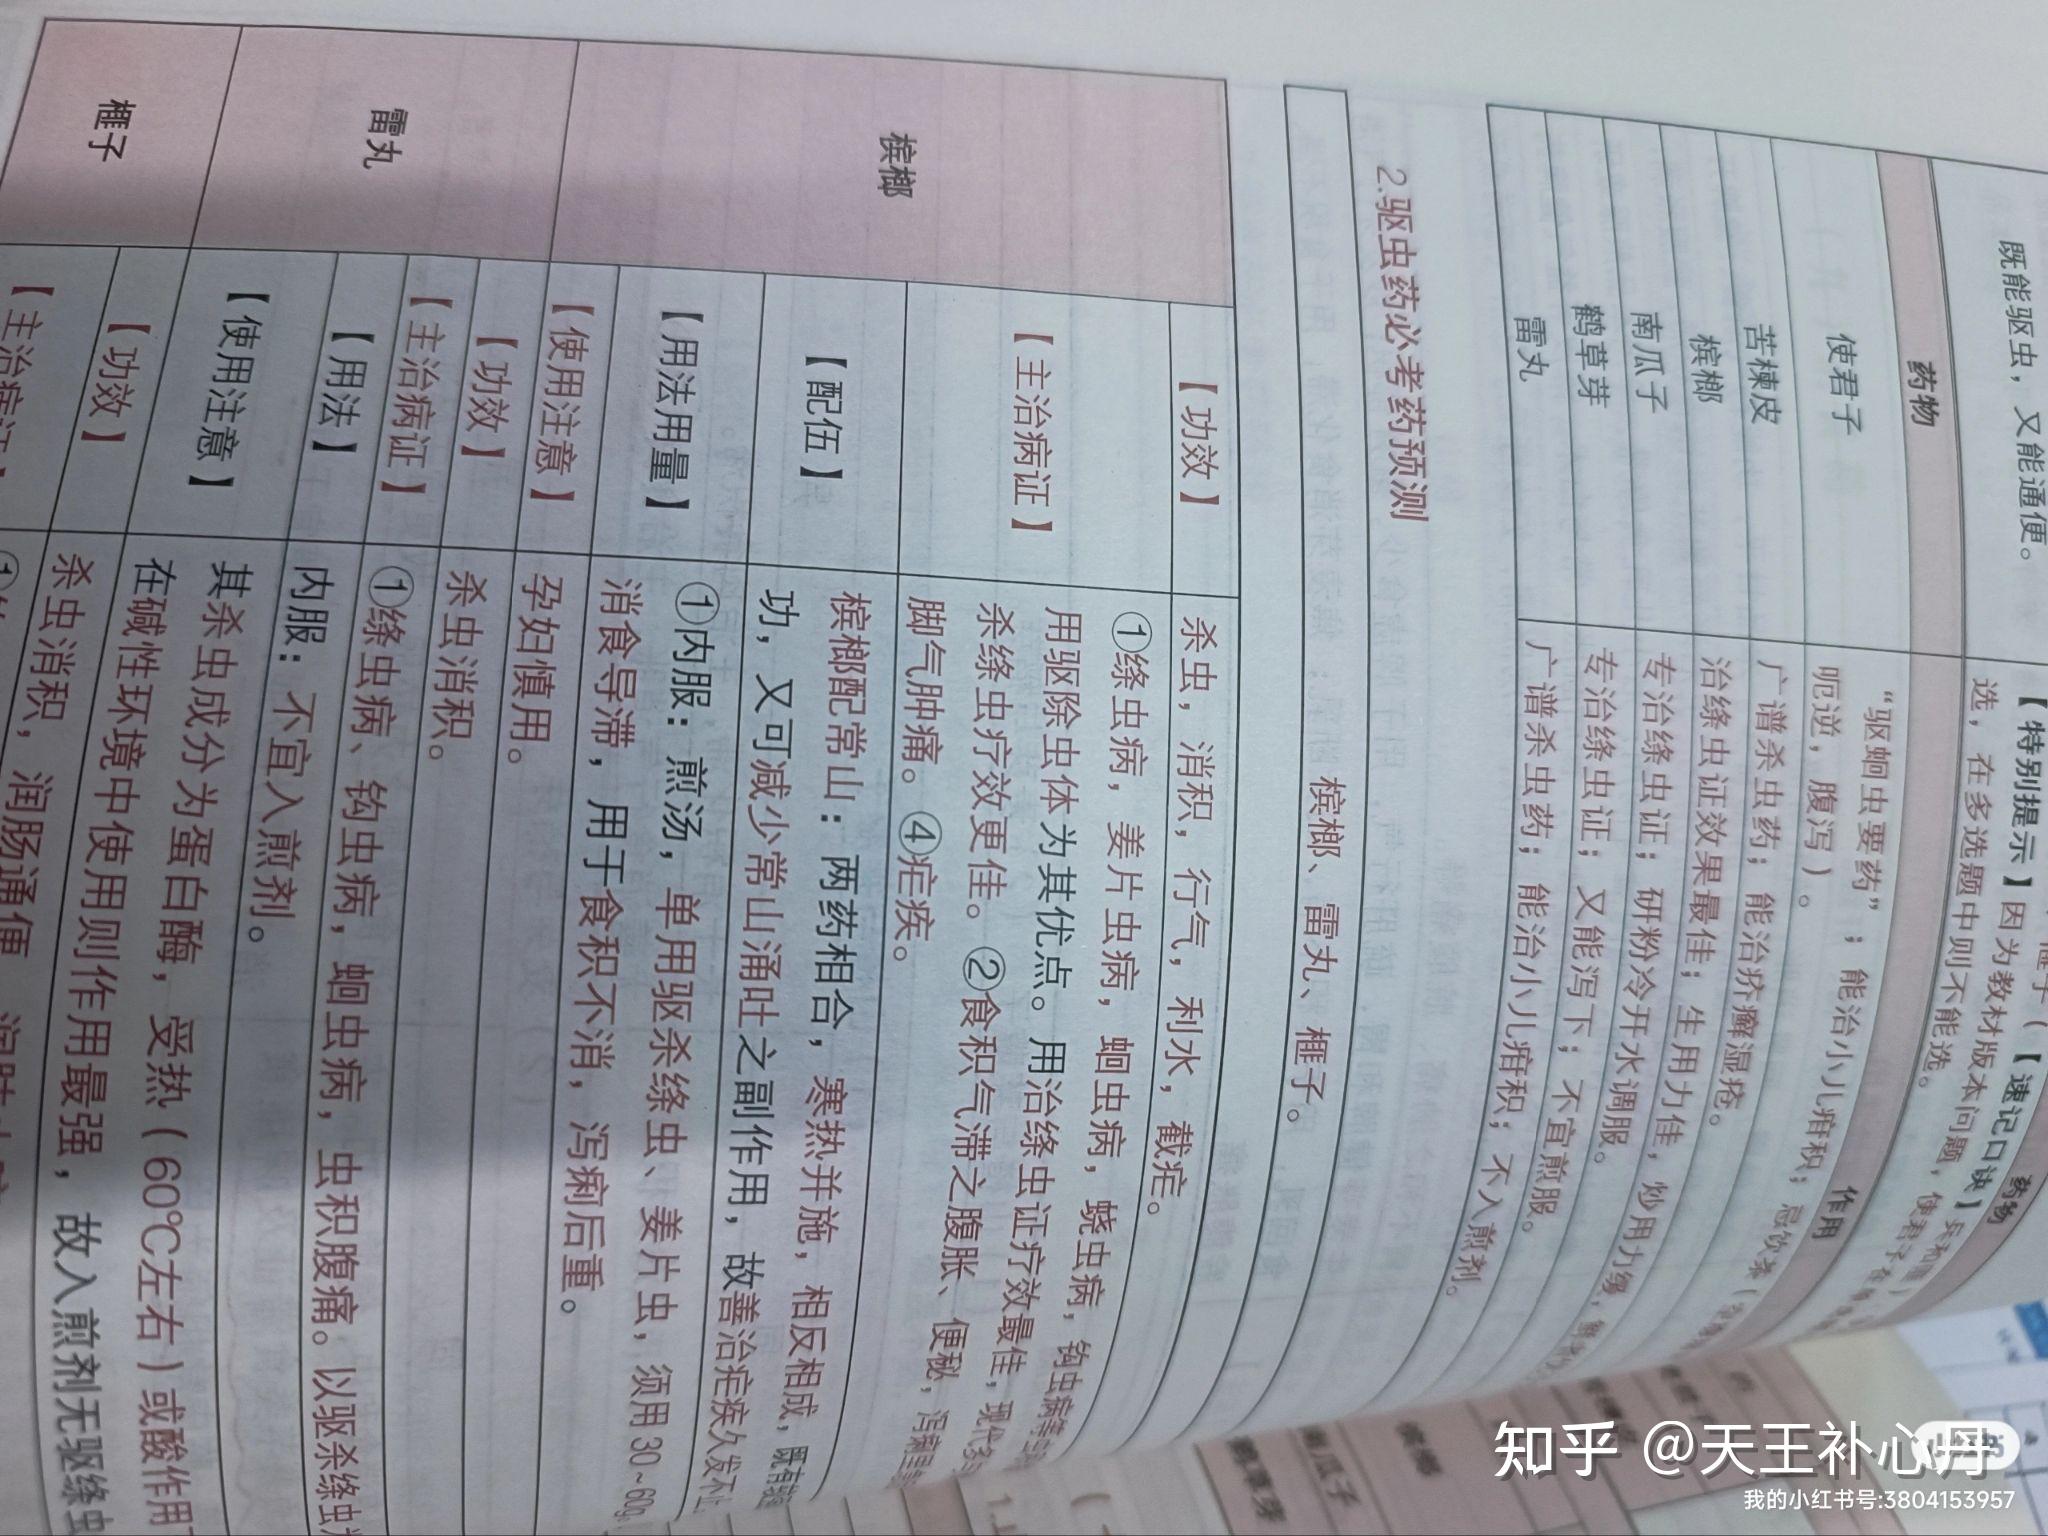 既能驱虫，又能通便。
【特别提示】因为教材版本问题，使君子在
选，在多选题中则不能选。
药物
作用
使君子
“驱蛔虫要药”；能治小儿疳积；忌饮茶（
呃逆，腹泻）。
苦楝皮
广谱杀虫药；能治疥癣湿疮。
槟榔
治绦虫证效果最佳；生用力佳，炒用力缓，
南瓜子
专治绦虫证；研粉冷开水调服。
鹤草芽
专治绦虫证；又能泻下；不宜煎服。
雷丸
广谱杀虫药；能治小儿疳积；不入煎剂。
2.驱虫药必考药预测
槟榔、雷丸、榧子。
槟榔
【功效】
杀虫，消积，行气，利水，截疟。
【主治病证】
①绦虫病，姜片虫病，蛔虫病，蛲虫病，钩虫病等
用驱除虫体为其优点。用治绦虫证疗效最佳，现代多
杀绦虫疗效更佳。②食积气滞之腹胀、便秘，泻痢里急
脚气肿痛。④疟疾。
【配伍】
槟榔配常山：两药相合，寒热并施，相反相成，既有
功，又可减少常山涌吐之副作用，故善治疟疾久发不止
【用法用量】
①内服：煎汤，单用驱杀绦虫、姜片虫，须用30~60g。
消食导滞，用于食积不消，泻痢后重。
【使用注意】
孕妇慎用。
雷丸
【功效】
杀虫消积。
【主治病证】
①绦虫病、钩虫病，蛔虫病，虫积腹痛。以驱杀绦虫
【用法】
内服：不宜入煎剂。
【使用注意】
其杀虫成分为蛋白酶，受热（60℃左右）或酸作用
在碱性环境中使用则作用最强，故入煎剂无驱绦虫
榧子
【功效】
杀虫消积，润肠通便
【主治病证】
南瓜子
鹤草芽
知乎 @天王补心丹
我的小红书号:3804153957